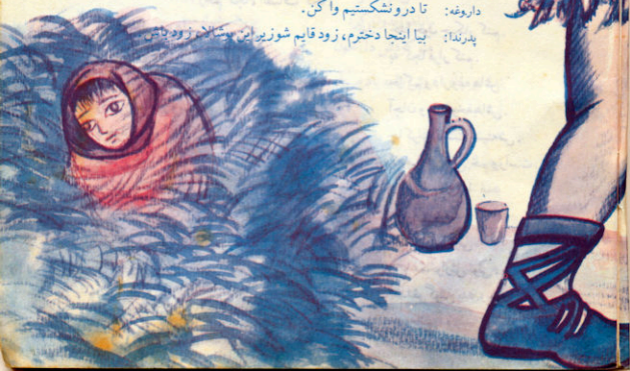 داروغه: تا درو نشکستیم وا کن.
پدرندا: بیا اینجا دخترم، زود قایم شو زیر این پوشالا، زود باش.